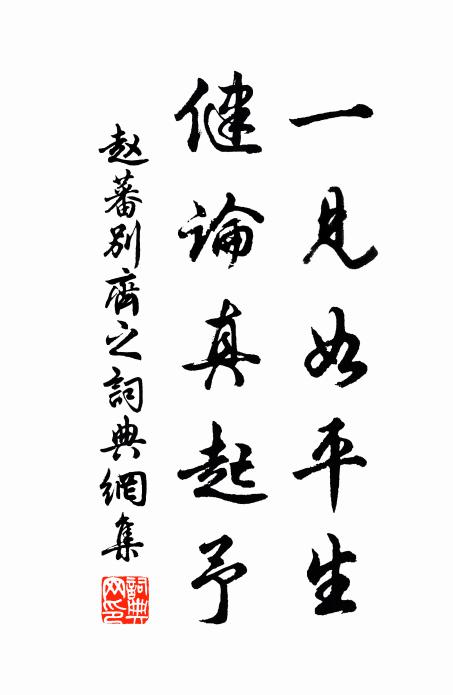 一見如平生
健論真起予
赵蕃别齊之詞典網集
詞典网印